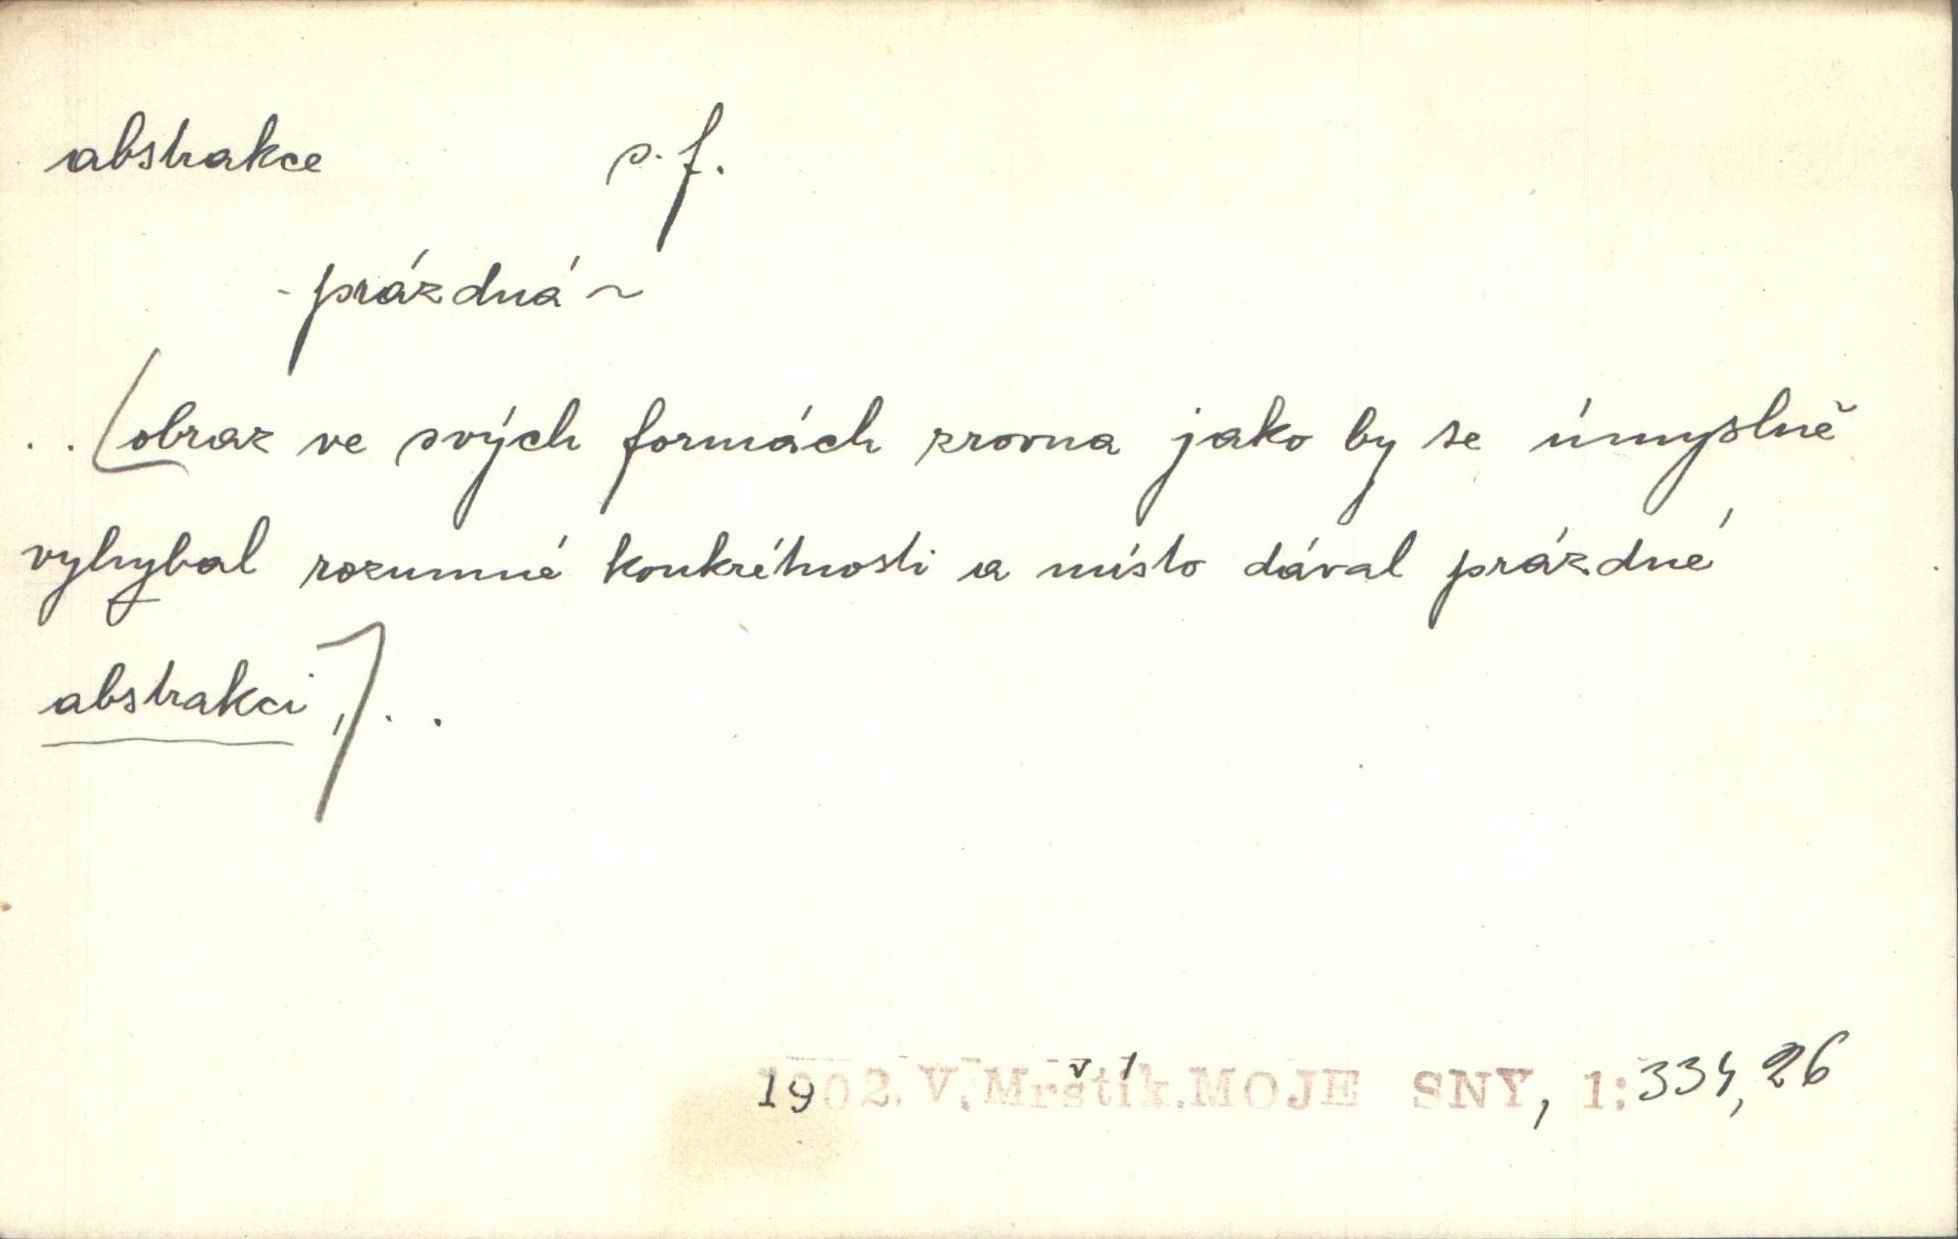 abstrakce s. f.
- prázdná ~
.. [obraz ve svých formách zrovna jako by se úmyslně
vyhybal rozumné konkrétnosti a místo dával prázdné
abstrakci,] ..
1902. V. Mrštík. MOJE SNY, 1: 334, 26